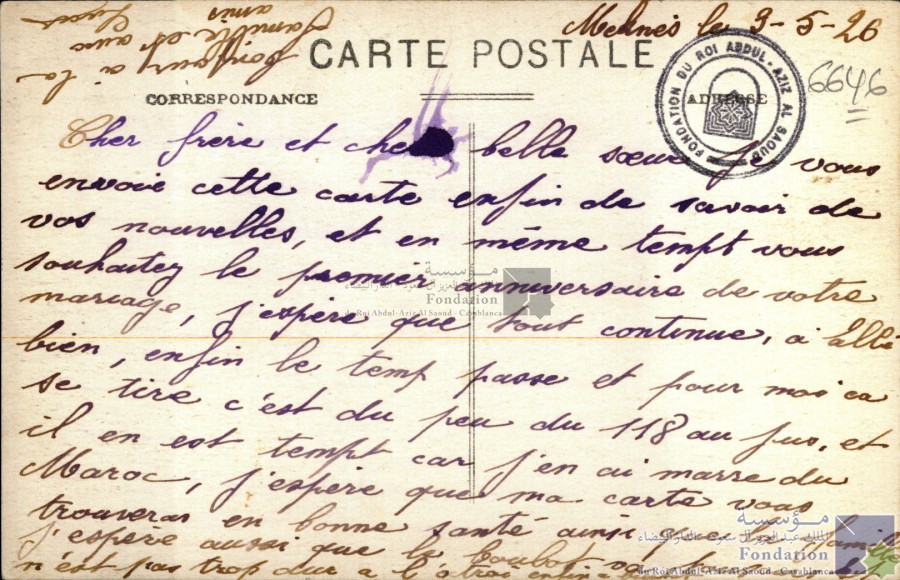 Meknès le 3-5-26
bonjour à la
famille et aux
amis
CARTE POSTALE
CORRESPONDANCE
ADRESSE
FONDATION DU ROI ABDUL-AZIZ AL SAOUD
6646
Cher frère et che belle sœur Je vous
envoie cette carte enfin de savoir de
vos nouvelles, et en même tempt vous
souhaitez le premier anniversaire de votre
mariage, j'espère que tout continue, a allé
bien, enfin le temp passe et pour moi ca
se tire c'est du peu du 118 au jus, et
il en est tempt car j'en ai marre du
Maroc, j'espère que ma carte vous
trouveras en bonne santé ainsi que
j'espère aussi que le boulot
n'est pas trop dur a
مؤسسة
الملك عبد العزيز آل سعود - الدار البيضاء
Fondation
du Roi Abdul-Aziz Al Saoud - Casablanca
مؤسسة
الملك عبد العزيز آل سعود - الدار البيضاء
Fondation
du Roi Abdul-Aziz Al Saoud - Casablanca